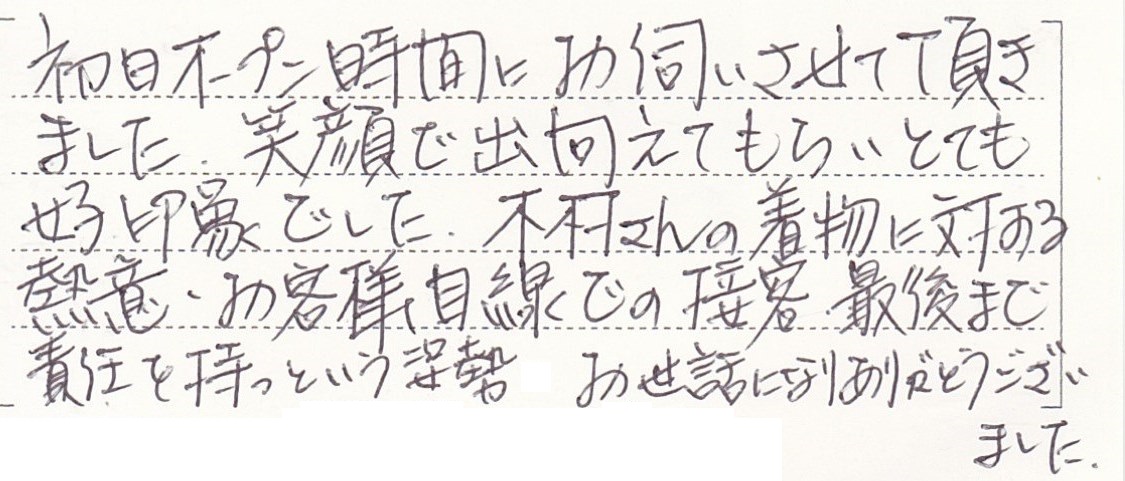 初日オープン時間にお伺いさせて頂き
ました. 笑顔で出向えてもらいとても
好印象でした. 木村さんの着物に対する
熱意、お客様目線での接客 最後まで
責任を持っという姿勢 お世話になりありがとうござい
ました.